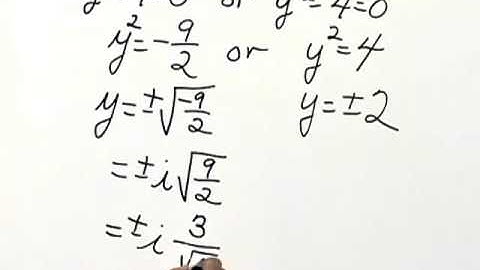 or y² - 4 = 0
y² = -9/2 or y² = 4
y = ±√(-9/2) y = ±2
= ±i√(9/2)
= ±i 3/√